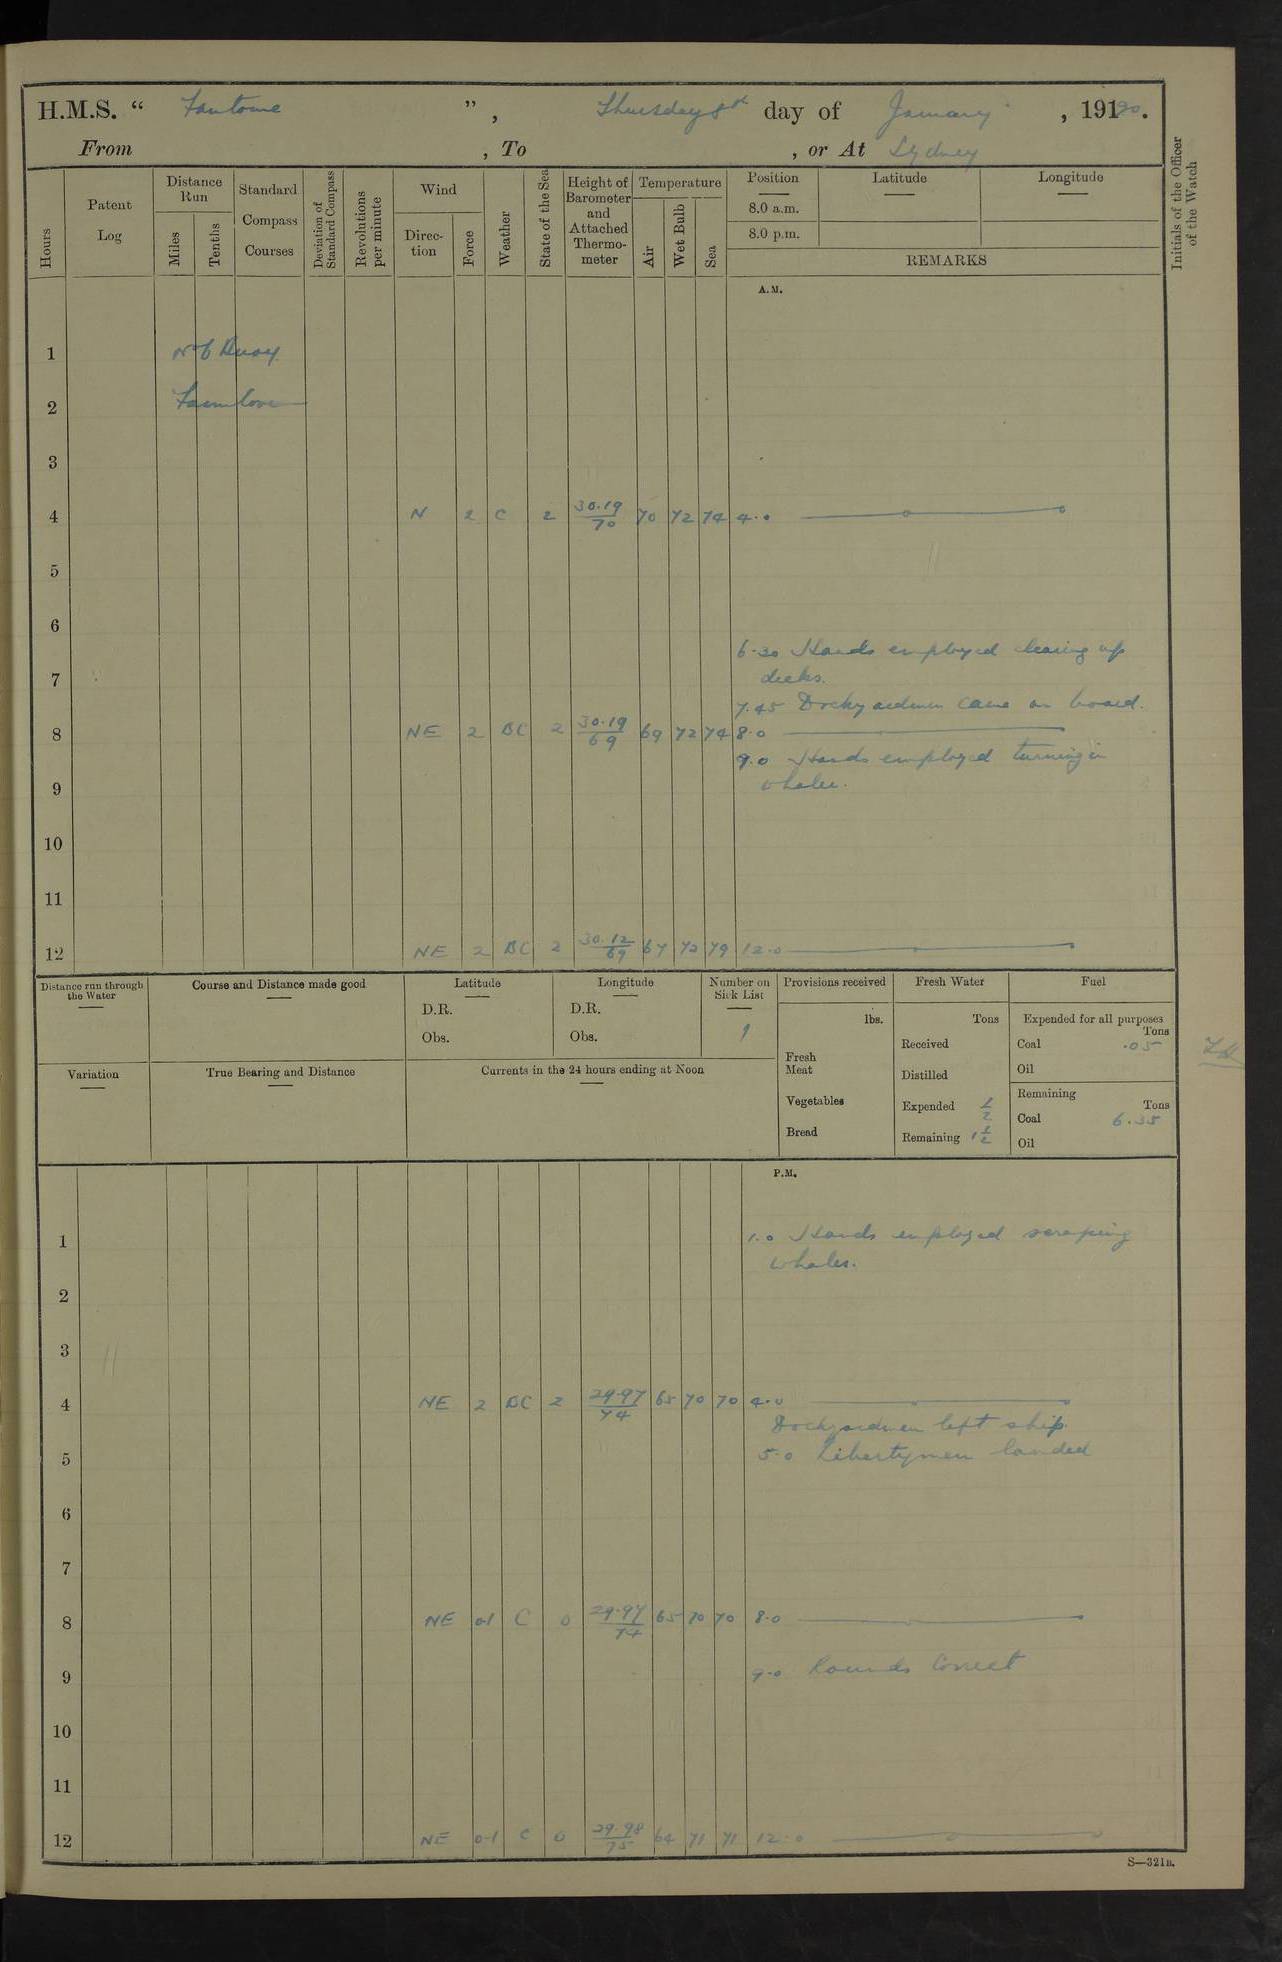 H.M.S. “ Fantome ” , Thursday 8th day of January , 19120.
From , To , or At Sydney
Hours
Patent Log
Distance Run
Miles
Tenths
Standard Compass Courses
Deviation of Standard Compass
Revolutions per minute
Wind
Direction
Force
Weather
State of the Sea
Height of Barometer and Attached Thermometer
Temperature
Air
Wet Bulb
Sea
Position
8.0 a.m.
8.0 p.m.
Latitude
Longitude
REMARKS
Initials of the Officer of the Watch
A.M.
1 No 6 Buoy
2 Farm Cove
3
4 N 2 C 2 30.19/70 70 72 74 4.0
5
6
6.30 Hands employed clearing up
7 decks.
7.45 Dockyardmen came on board.
8 NE 2 BC 2 30.19/69 69 72 74 8.0
9.0 Hands employed turning in
9 whaler.
10
11
12 NE 2 BC 2 30.12/69 67 72 79 12.0
Distance run through the Water
Course and Distance made good
Latitude
D.R.
Obs.
Longitude
D.R.
Obs.
Number on Sick List
1
Provisions received
lbs.
Fresh Meat
Vegetables
Bread
Fresh Water
Tons
Received
Distilled
Expended 1/2
Remaining 1 1/2
Fuel
Expended for all purposes
Tons
Coal .05
Oil
Remaining
Tons
Coal 6.35
Oil
Variation
True Bearing and Distance
Currents in the 24 hours ending at Noon
P.M.
1 1.0 Hands employed scraping
whaler.
2
3
4 NE 2 BC 2 29.97/74 65 70 70 4.0
Dockyardmen left ship.
5 5.0 Libertymen landed
6
7
8 NE 0-1 C 0 29.97/74 65 70 70 8.0
9 9.0 Rounds Correct
10
11
12 NE 0-1 C 0 29.98/75 64 71 71 12.0
S—321B.